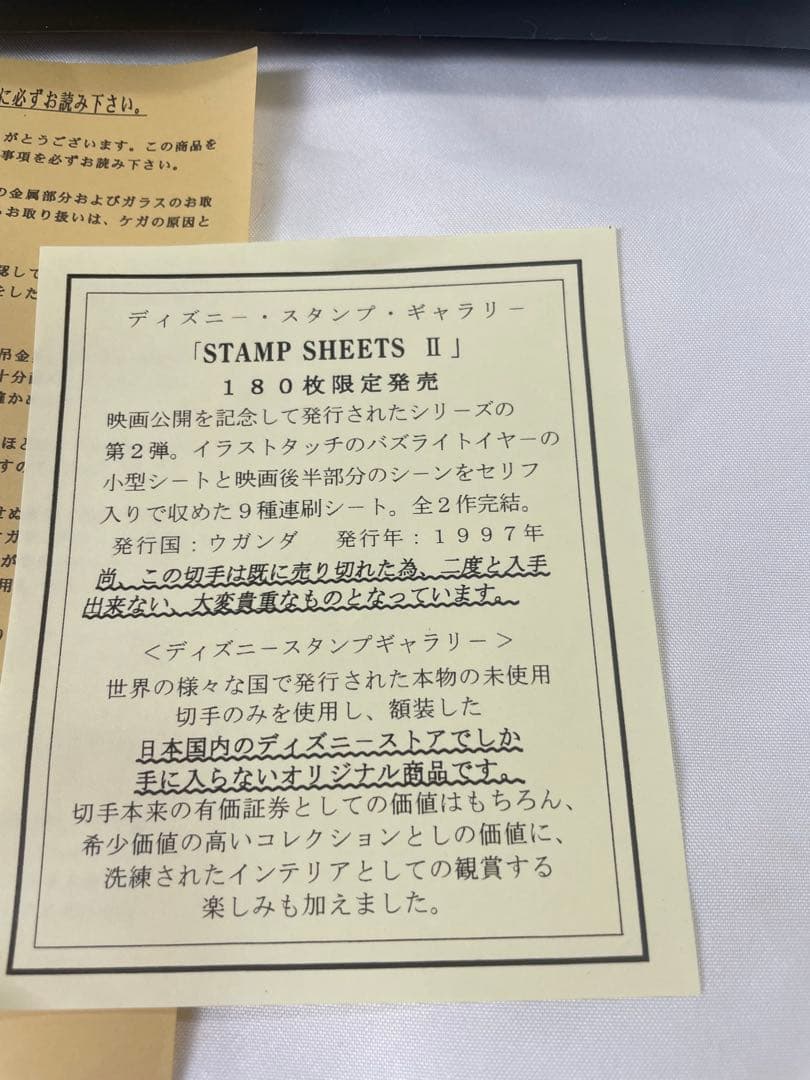 に必ずお読み下さい。
がとうございます。この商品を
事項を必ずお読み下さい。
の金属部分およびガラスのお取
お取り扱いは、ケガの原因と
認して
をした
吊金
十分
確かめ
ほど
すの
せぬ
ガ
が
用
ディズニー・スタンプ・ギャラリー
「STAMP SHEETS Ⅱ」
180枚限定発売
映画公開を記念して発行されたシリーズの
第2弾。イラストタッチのバズライトイヤーの
小型シートと映画後半部分のシーンをセリフ
入りで収めた9種連刷シート。全2作完結。
発行国：ウガンダ　発行年：1997年
尚、この切手は既に売り切れた為、二度と入手
出来ない、大変貴重なものとなっています。
＜ディズニースタンプギャラリー＞
世界の様々な国で発行された本物の未使用
切手のみを使用し、額装した
日本国内のディズニーストアでしか
手に入らないオリジナル商品です。
切手本来の有価証券としての価値はもちろん、
希少価値の高いコレクションとしの価値に、
洗練されたインテリアとしての観賞する
楽しみも加えました。